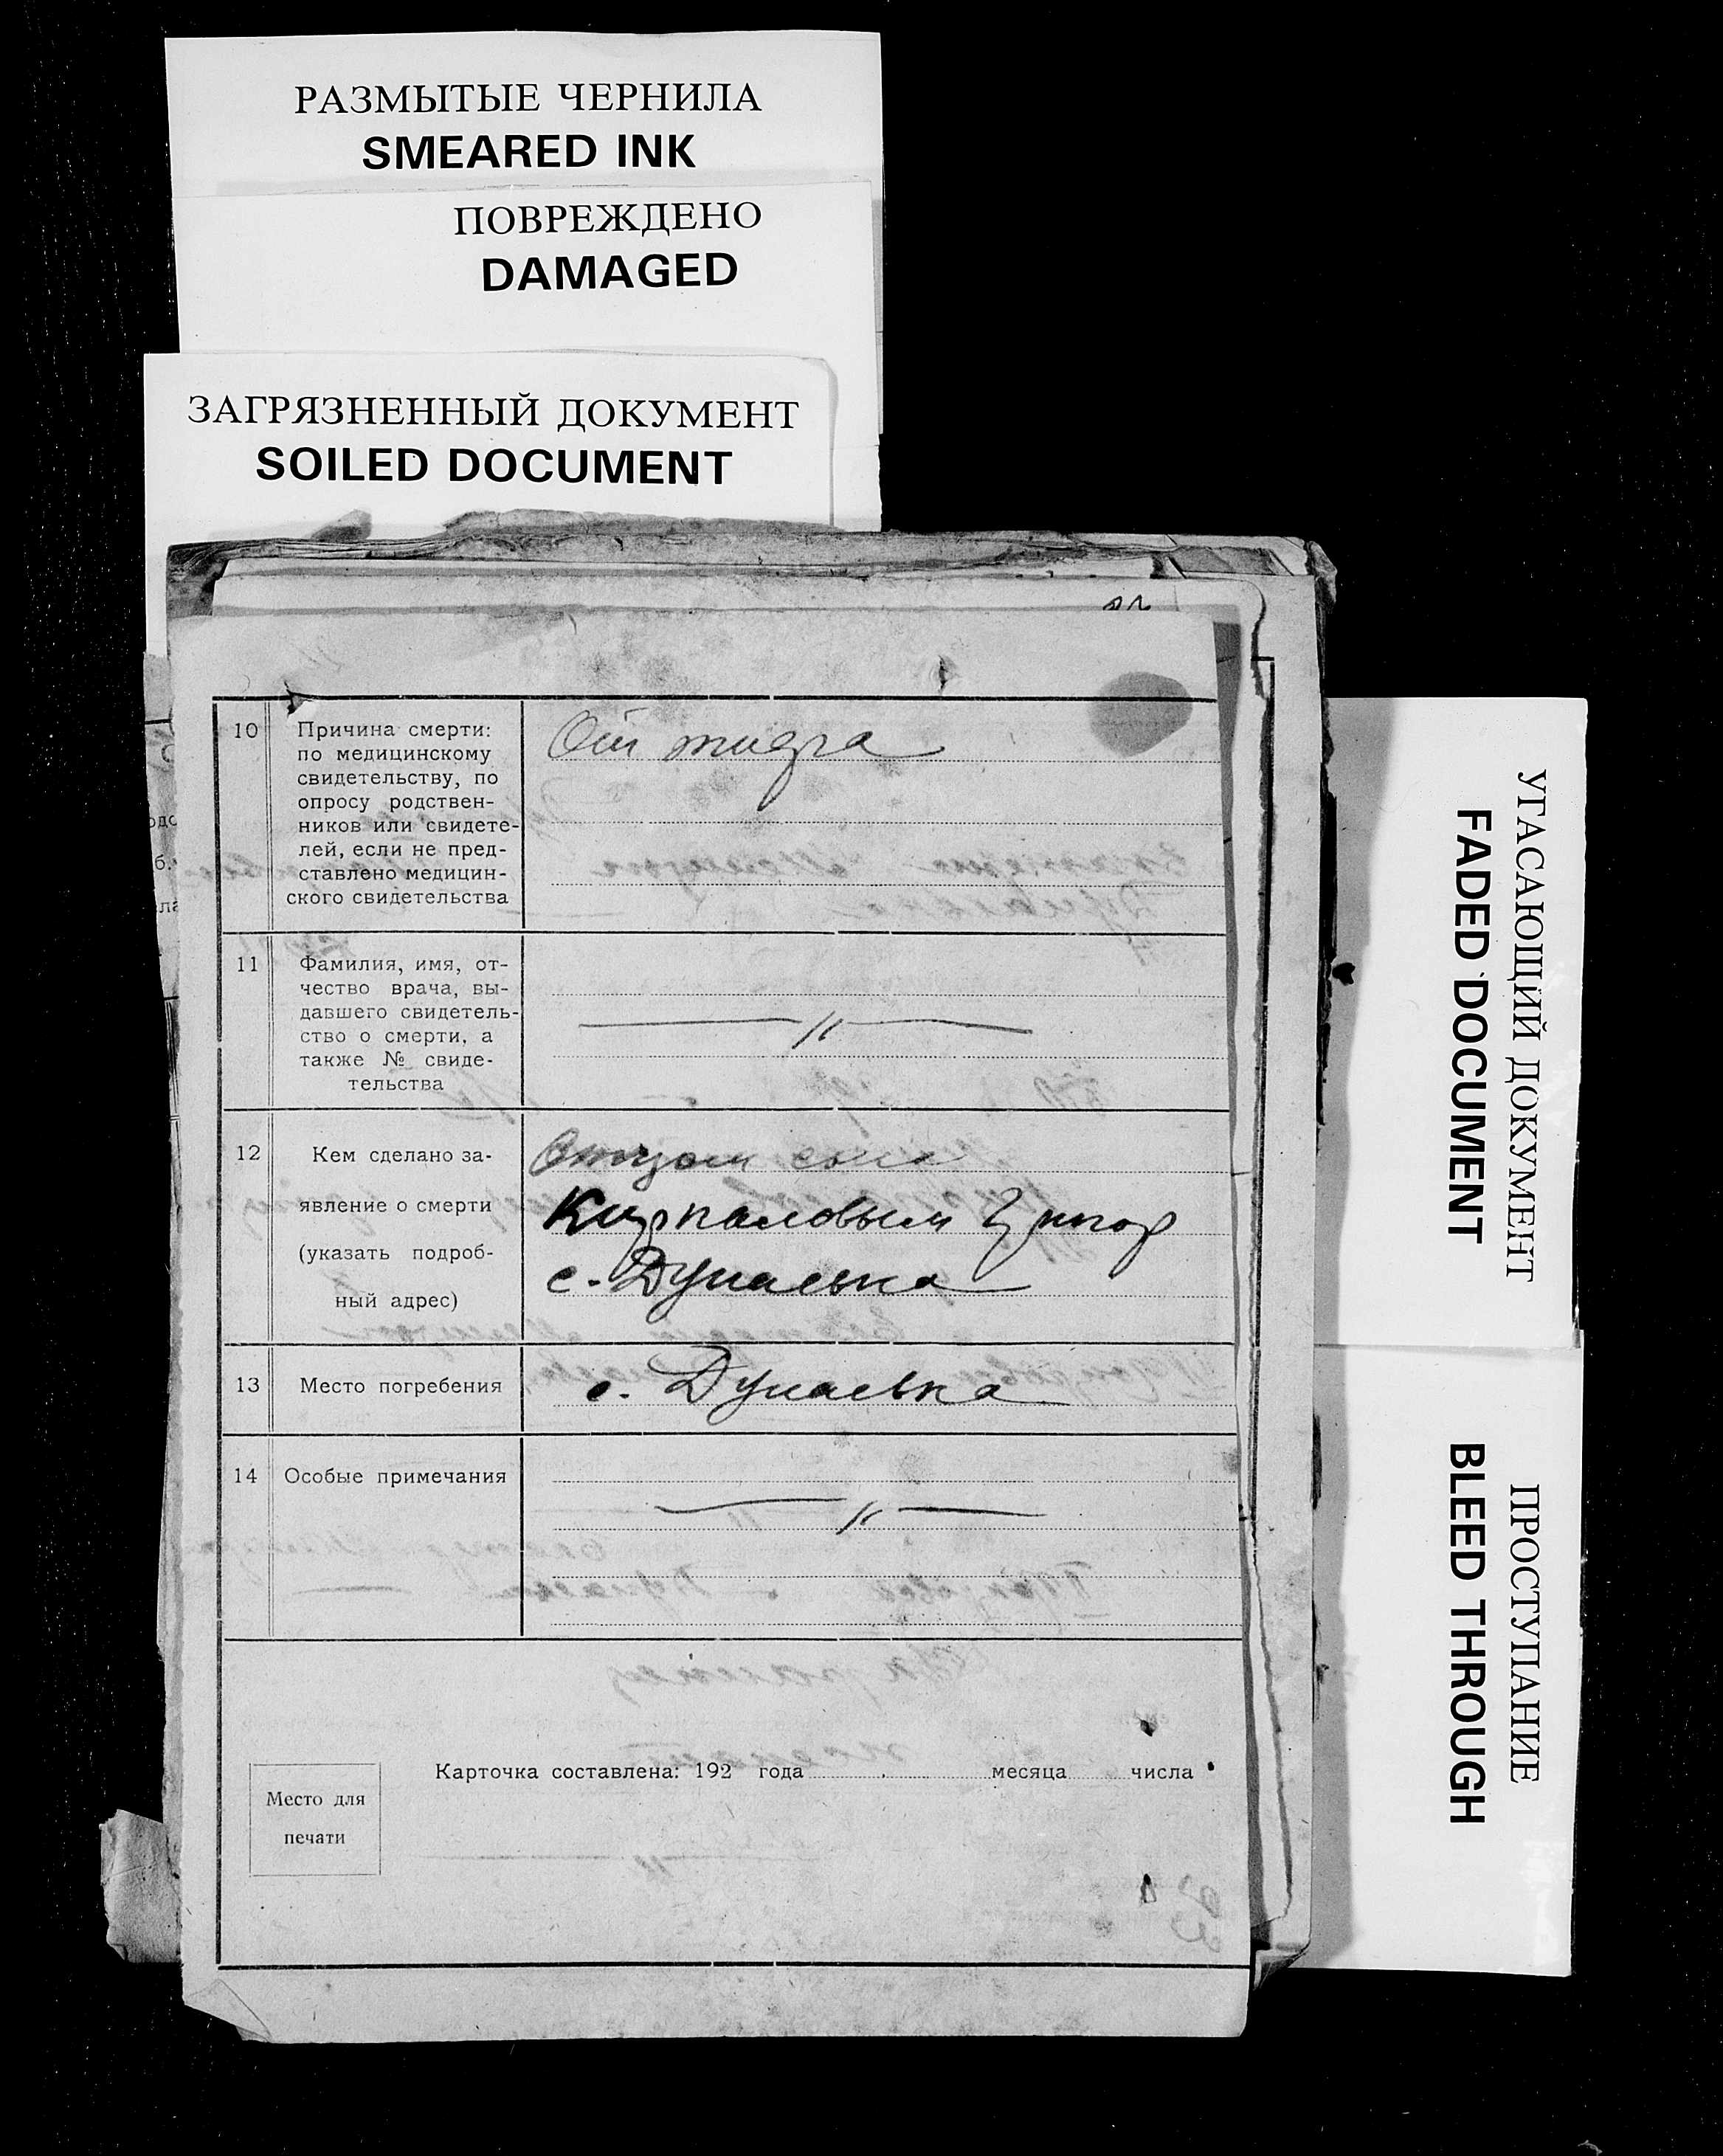 РАЗМЫТЫЕ ЧЕРНИЛА
SMEARED INK
ПОВРЕЖДЕНО
DAMAGED
ЗАГРЯЗНЕННЫЙ ДОКУМЕНТ
SOILED DOCUMENT
10
Причина смерти:
по медицинскому
свидетельству, по
опросу родствен-
ников или свидете-
лей, если не пред-
ставлено медицин-
ского свидетельства
От
11
Фамилия, имя, от-
чество врача, вы-
давшего свидетель-
ство о смерти, а
также № свиде-
тельства
— " —
12
Кем сделано за-
явление о смерти
(указать подроб-
ный адрес)
Отцом
с. Дунаевка
13
Место погребения
с. Дунаевка
14
Особые примечания
— " —
Карточка составлена: 192 года месяца числа
Место для
печати
УГАСАЮЩИЙ ДОКУМЕНТ
FADED DOCUMENT
ПРОСТУПАНИЕ
BLEED THROUGH